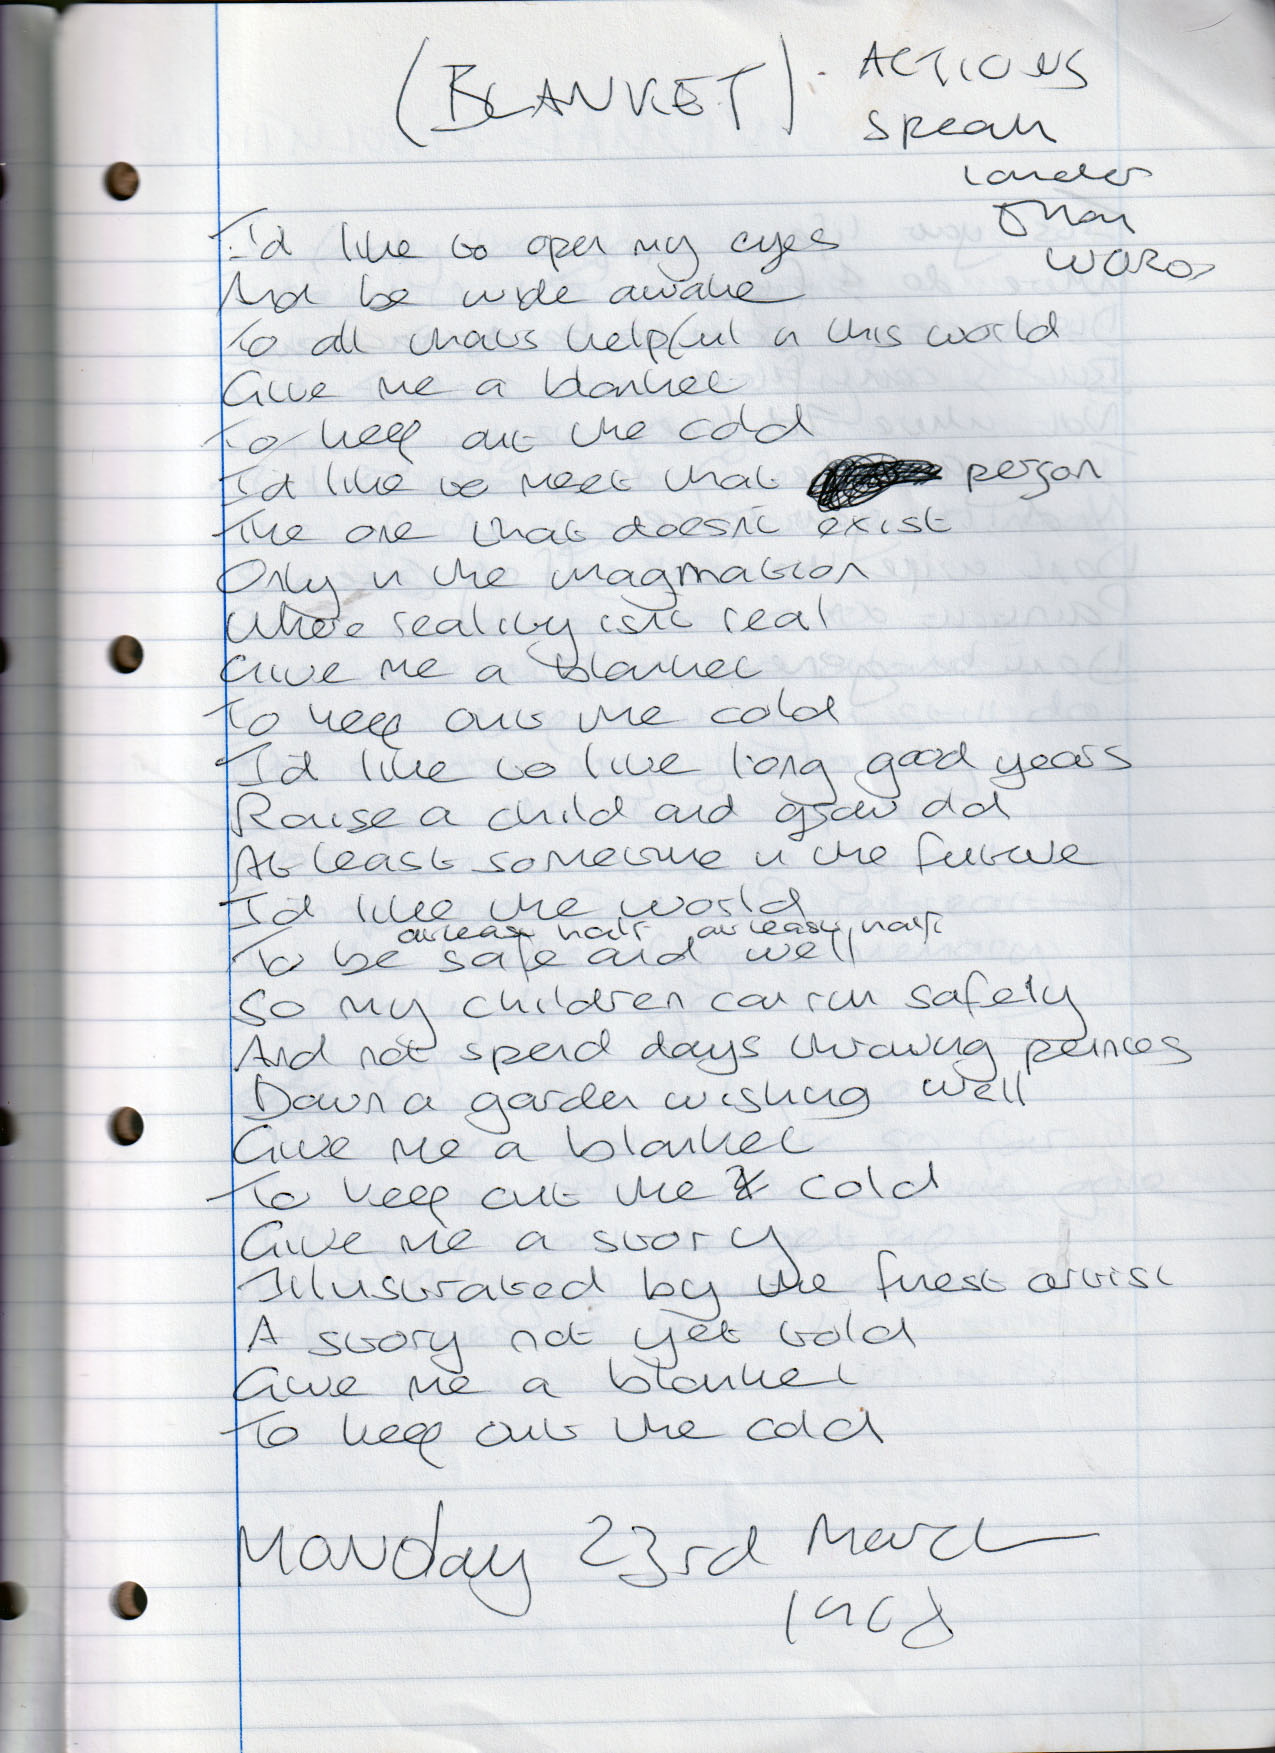 (BLANKET). ACTIONS
speak
louder
than
WORDS
I'd like to open my eyes
And be wide awake
To all thats helpful in this world
Give me a blanket
To keep out the cold
I'd like to meet that person
The one that doesn't exist
Only in the imagination
Where reality isn't real
Give me a blanket
To keep out the cold
I'd like to live long good years
Raise a child and grow old
At least sometime in the future
I'd like the world
at least half at least half
To be safe and well
So my children can run safely
And not spend days throwing pennies
Down a garden wishing well
Give me a blanket
To keep out the cold
Give me a story
Illustrated by the finest artist
A story not yet told
Give me a blanket
To keep out the cold
Monday 23rd March